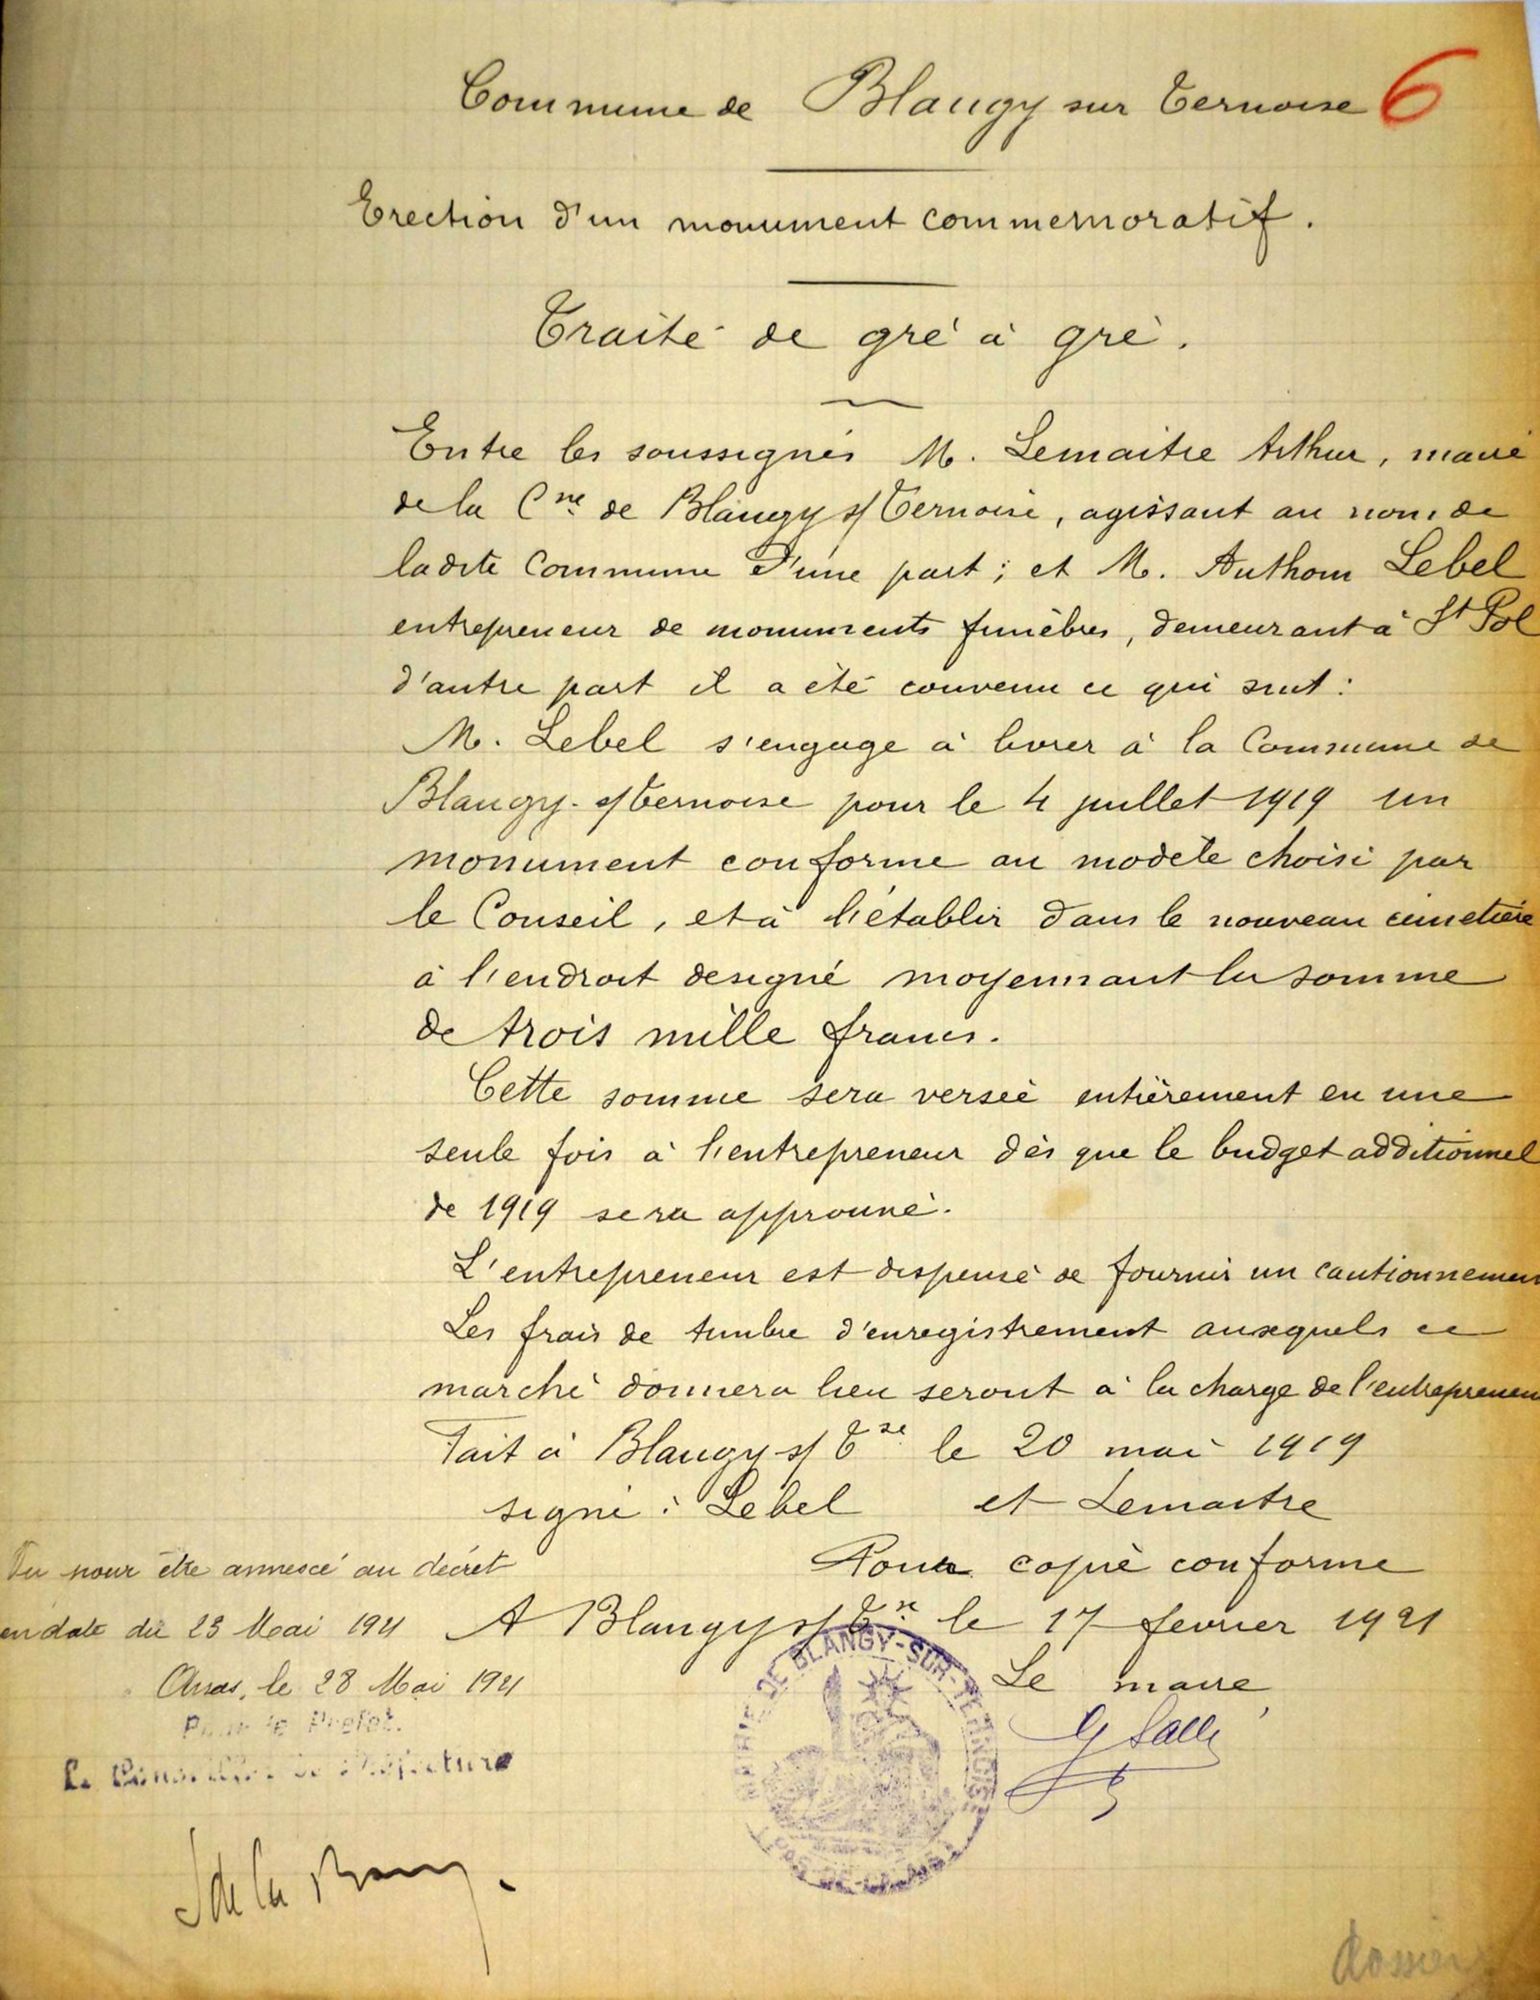 Commune de Blangy sur Ternoise 6
Erection d'un monument commemoratif.
Traité de gré à gré.
Entre les soussignés M. Lemaitre Arthur, maire
de la Cne de Blangy s/ Ternoise, agissant au nom de
ladite Commune d'une part ; et M. Lebel
entrepreneur de monuments funèbres, demeurant à St Pol
d'autre part il a été convenu ce qui suit :
M. Lebel s'engage à livrer à la Commune de
Blangy-s/Ternoise pour le 4 juillet 1919 un
monument conforme au modèle choisi par
le Conseil, et à l'établir dans le nouveau cimetière
à l'endroit designé moyennant la somme
de trois mille francs.
Cette somme sera versée entièrement en une
seule fois à l'entrepreneur dès que le budget additionnel
de 1919 sera approuvé.
L'entrepreneur est dispensé de fournir un cautionnemen
Les frais de timbre d'enregistrement auxquels ce
marché donnera lieu seront à la charge de l'entrepreneu
Fait à Blangy s/ Tse le 20 mai 1919
signé : Lebel et Lemaitre
Vu pour être annexé au décret
Pour copie conforme
en date du 23 Mai 1921
A Blangy s/ Tse le 17 fevrier 1921
Arras, le 28 Mai 1921
Le maire
Pour le Préfet.
Le Conseiller de Préfecture
MAIRIE DE BLANGY-SUR-TERNOISE
PAS-DE-CALAIS
dossier